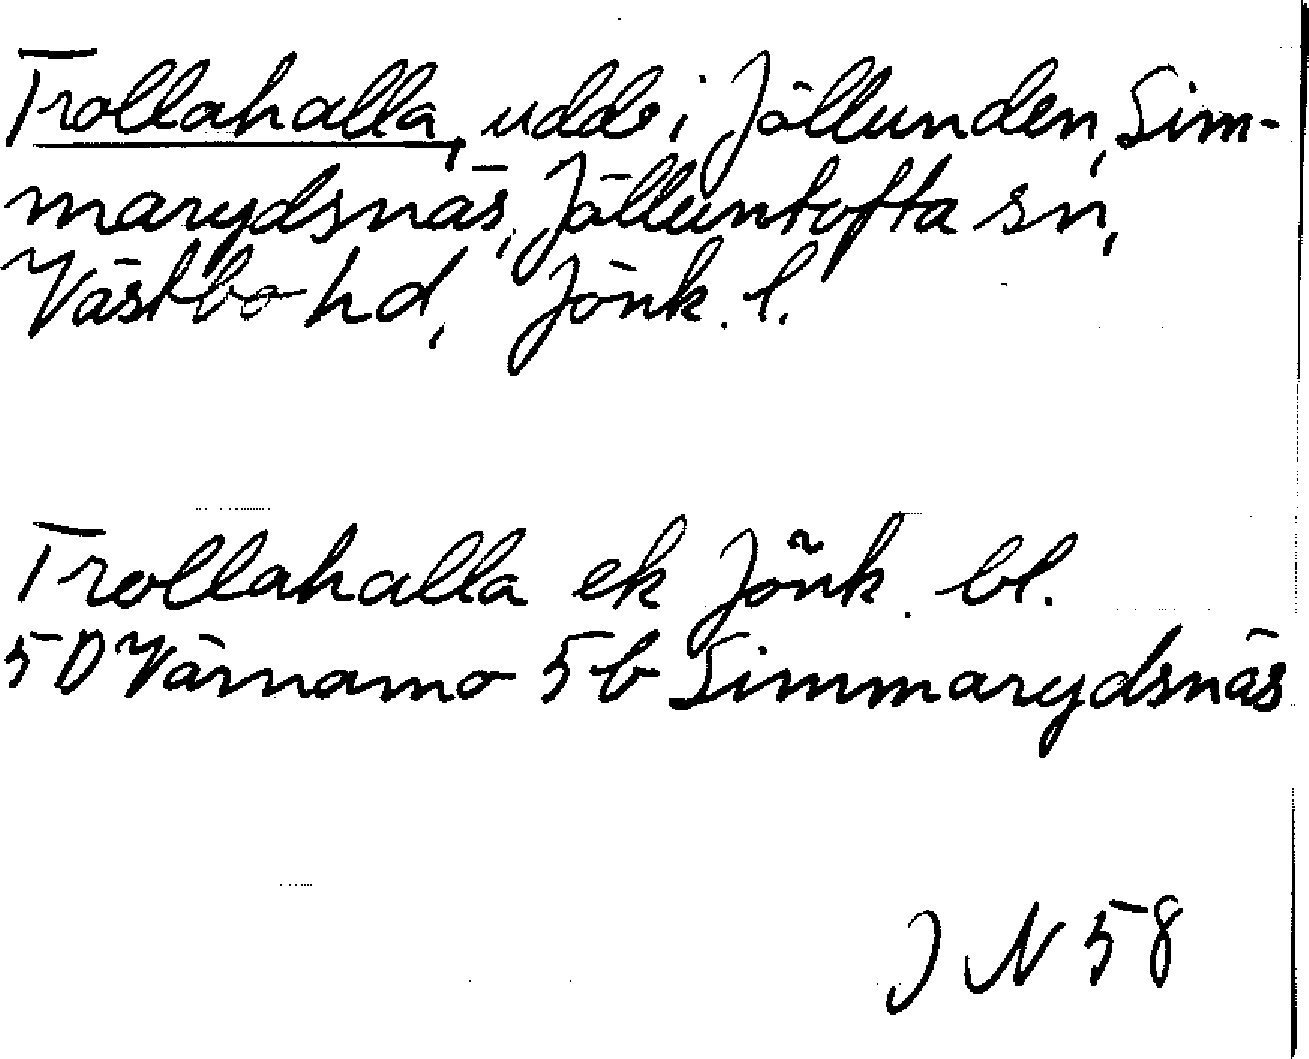 Trollahalla, udde i Jällunden, Sim-
marydsnäs, Jälluntofta sn,
Västbo hd, Jönk. l.
Trollahalla ek Jönk. bl.
5D Värnamo 5b Simmarydsnäs
J N 58